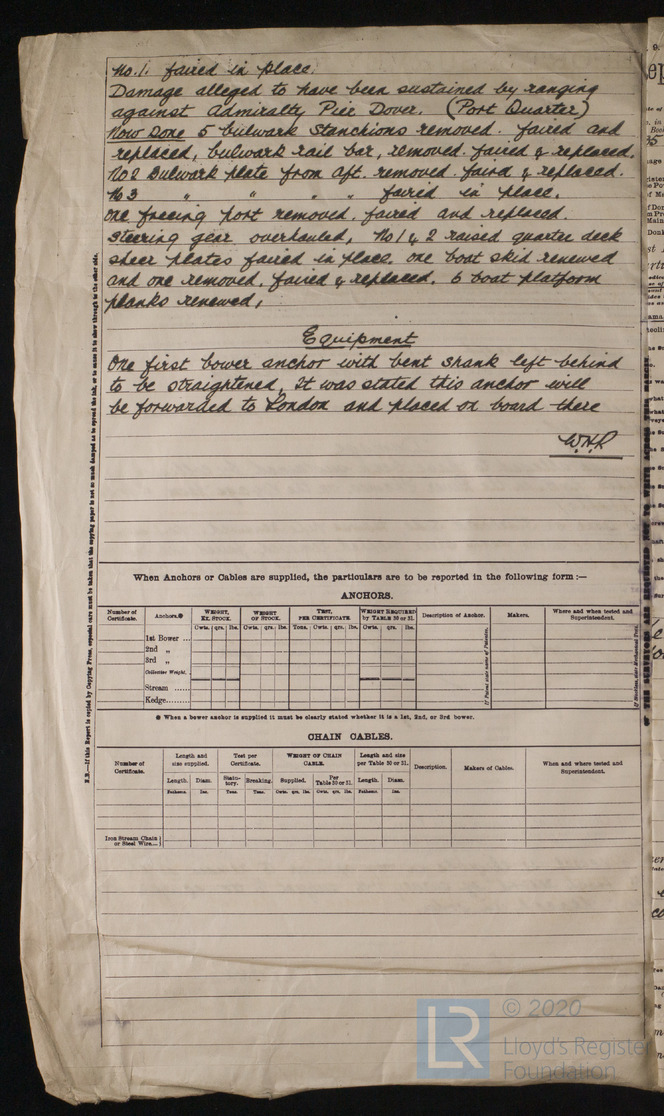 No. 1. faired in place.
Damage alleged to have been sustained by ranging
against Admiralty Pier Dover. (Port Quarter)
Now Done 5 bulwark stanchions removed. faired and
replaced, bulwark rail bar, removed faired & replaced.
No 2 Bulwark plate from aft. removed. faird & replaced.
No 3 " " " " faired in place.
One freeing port removed. faired and replaced.
Steering gear overhauled, No 1 & 2 raised quarter deck
sheer plates faired in place. one boat skid renewed
and one removed, faired & replaced. 6 boat platform
planks renewed,
Equipment
One first bower anchor with bent shank left behind
to be straightened, It was stated this anchor will
be forwarded to London and placed on board there
W.H.R
N.B.—If this Report is copied by Copying Press, especial care must be taken that the copying paper is not so much damped as to spread the ink, or to cause it to show through to the other side.
When Anchors or Cables are supplied, the particulars are to be reported in the following form :—
ANCHORS.
Number of Certificate. Anchors.* WEIGHT, EX. STOCK. WEIGHT OF STOCK. TEST, PER CERTIFICATE. WEIGHT REQUIRED by TABLE 30 or 31. Description of Anchor. Makers. Where and when tested and Superintendent.
Cwts. qrs. lbs. Cwts. qrs. lbs. Tons. qrs. lbs. Cwts. qrs. lbs.
1st Bower ...
2nd „
3rd „
Collective Weight.
Stream ......
Kedge........
If Patent state name of Patentee.
* When a bower anchor is supplied it must be clearly stated whether it is a 1st, 2nd, or 3rd bower.
CHAIN CABLES.
Number of Certificate. Length and size supplied. Test per Certificate. WEIGHT OF CHAIN CABLE. Length and size per Table 30 or 31. Description. Makers of Cables. When and where tested and Superintendent.
Length. Diam. Statutory. Breaking. Supplied. Per Table 30 or 31. Length. Diam.
Fathoms. Ins. Tons. Tons. Cwts. qrs. lbs. Cwts. qrs. lbs. Fathoms. Ins.
Iron Stream Chain or Steel Wire...
LR
© 2020
Lloyd's Register
Foundation